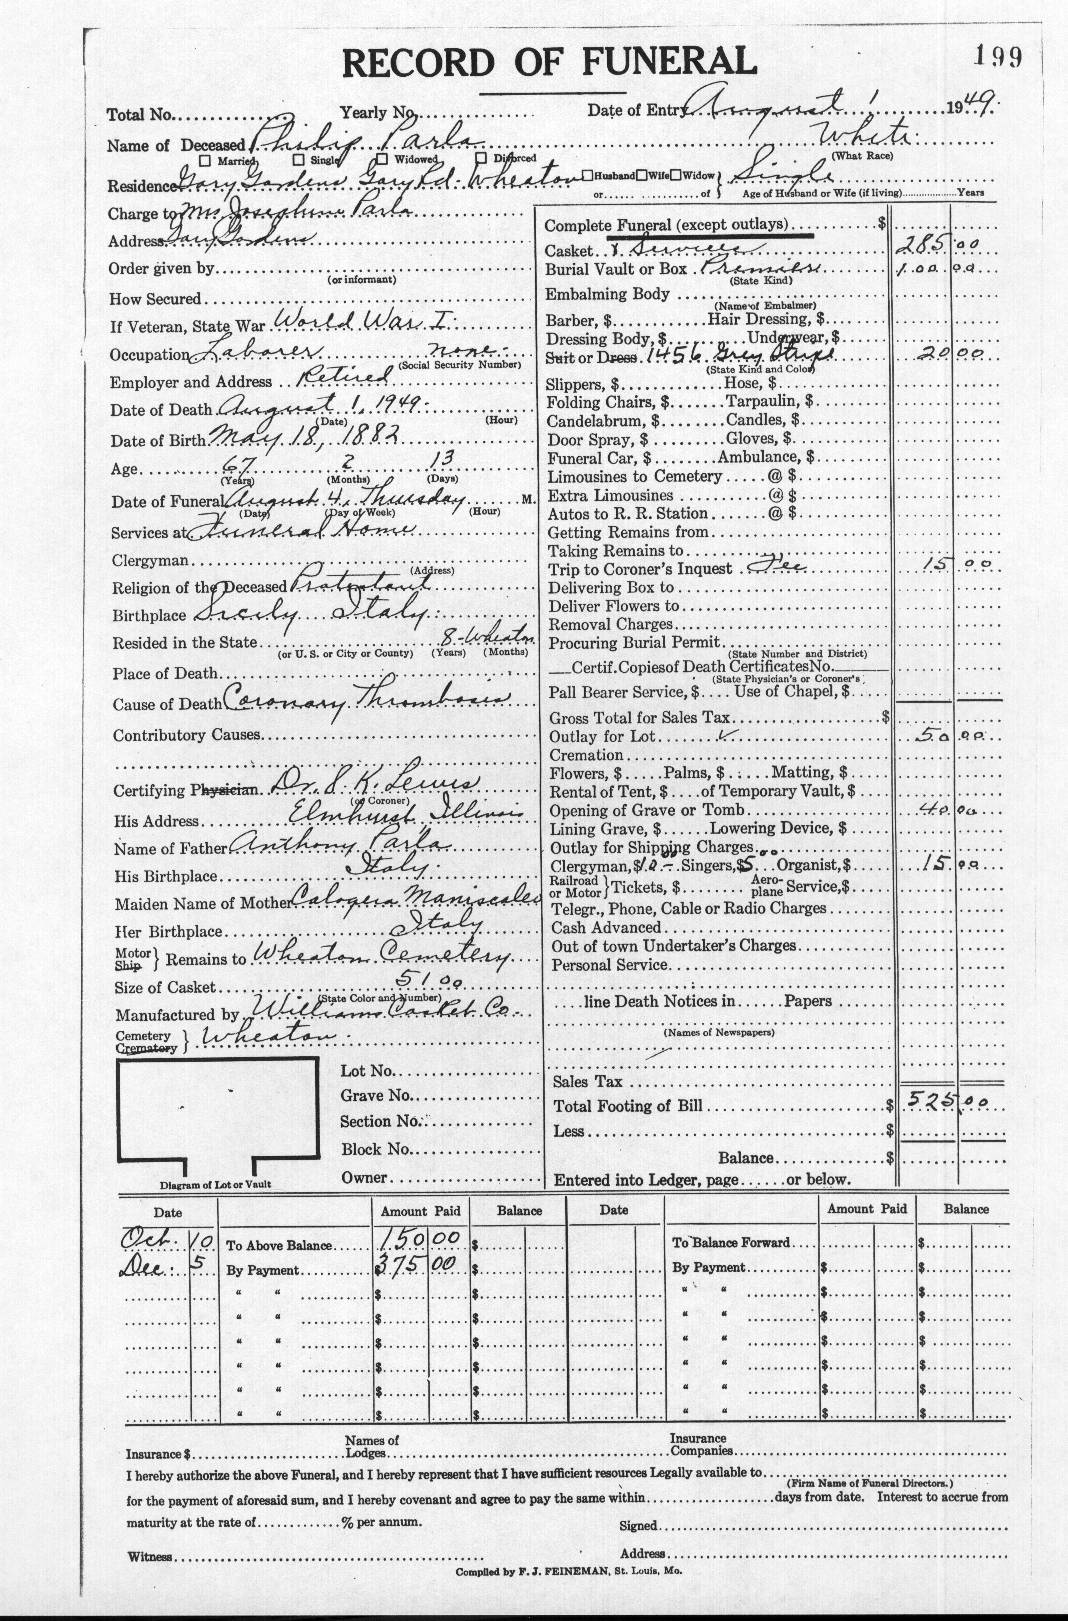 RECORD OF FUNERAL
199
Total No. Yearly No. Date of Entry August 1 1949.
Name of Deceased Philip Parla White.
Married Single Widowed Divorced (What Race)
Residence Gary Gardens Gary Rd. Wheaton Husband Wife Widow } Single
or of Age of Husband or Wife (if living) Years
Charge to Mrs Josephine Parla
Address Gary Gardens
Order given by
(or informant)
How Secured
If Veteran, State War World War I.
Occupation Laborer none.
(Social Security Number)
Employer and Address Retired
Date of Death August 1, 1949.
(Date) (Hour)
Date of Birth May 18, 1882
Age 67 2 13
(Years) (Months) (Days)
Date of Funeral August 4. Thursday M.
(Date) (Day of Week) (Hour)
Services at Funeral Home
Clergyman
(Address)
Religion of the Deceased Protestant
Birthplace Sicily Italy.
Resided in the State 8-Wheaton
(or U. S. or City or County) (Years) (Months)
Place of Death
Cause of Death Coronary Thrombosis
Contributory Causes
Certifying Physician Dr. S. K. Lewis
(or Coroner)
His Address Elmhurst Illinois
Name of Father Anthony Parla
His Birthplace Italy.
Maiden Name of Mother Calogera Maniscalco
Her Birthplace Italy
Motor
Ship } Remains to Wheaton Cemetery
Size of Casket 5100
(State Color and Number)
Manufactured by Williams Casket Co.
Cemetery
Crematory } Wheaton.
Lot No.
Grave No.
Section No.
Block No.
Owner
Diagram of Lot or Vault
Complete Funeral (except outlays) $
Casket & Services 285 00
Burial Vault or Box 100 00
(State Kind)
Embalming Body
(Name of Embalmer)
Barber, $ Hair Dressing, $
Dressing Body, $ Underwear, $
Suit or Dress 1456 Grey Stripe 20 00
(State Kind and Color)
Slippers, $ Hose, $
Folding Chairs, $ Tarpaulin, $
Candelabrum, $ Candles, $
Door Spray, $ Gloves, $
Funeral Car, $ Ambulance, $
Limousines to Cemetery @ $
Extra Limousines @ $
Autos to R. R. Station @ $
Getting Remains from
Taking Remains to
Trip to Coroner's Inquest Fee 15 00
Delivering Box to
Deliver Flowers to
Removal Charges
Procuring Burial Permit
(State Number and District)
Certif. Copies of Death Certificates No.
(State Physician's or Coroner's)
Pall Bearer Service, $ Use of Chapel, $
Gross Total for Sales Tax $
Outlay for Lot ✓ 50 00
Cremation
Flowers, $ Palms, $ Matting, $
Rental of Tent, $ of Temporary Vault, $
Opening of Grave or Tomb 40 00
Lining Grave, $ Lowering Device, $
Outlay for Shipping Charges
Clergyman, $10 00 Singers, $5 00 Organist, $ 15 00
Railroad
or Motor } Tickets, $ Aero-
plane Service, $
Telegr., Phone, Cable or Radio Charges
Cash Advanced
Out of town Undertaker's Charges
Personal Service
line Death Notices in Papers
(Names of Newspapers)
Sales Tax
Total Footing of Bill $ 525 00
Less $
Balance $
Entered into Ledger, page or below.
Date Amount Paid Balance Date Amount Paid Balance
Oct. 10 To Above Balance 150 00 $ To Balance Forward $
Dec. 5 By Payment $375 00 $ By Payment $ $
“ “ $ $ “ “ $ $
“ “ $ $ “ “ $ $
“ “ $ $ “ “ $ $
“ “ $ $ “ “ $ $
“ “ $ $ “ “ $ $
“ “ $ $ “ “ $ $
Insurance $ Names of
Lodges Insurance
Companies
I hereby authorize the above Funeral, and I hereby represent that I have sufficient resources Legally available to
(Firm Name of Funeral Directors.)
for the payment of aforesaid sum, and I hereby covenant and agree to pay the same within days from date. Interest to accrue from
maturity at the rate of % per annum. Signed
Witness Address
Compiled by F. J. FEINEMAN, St. Louis, Mo.